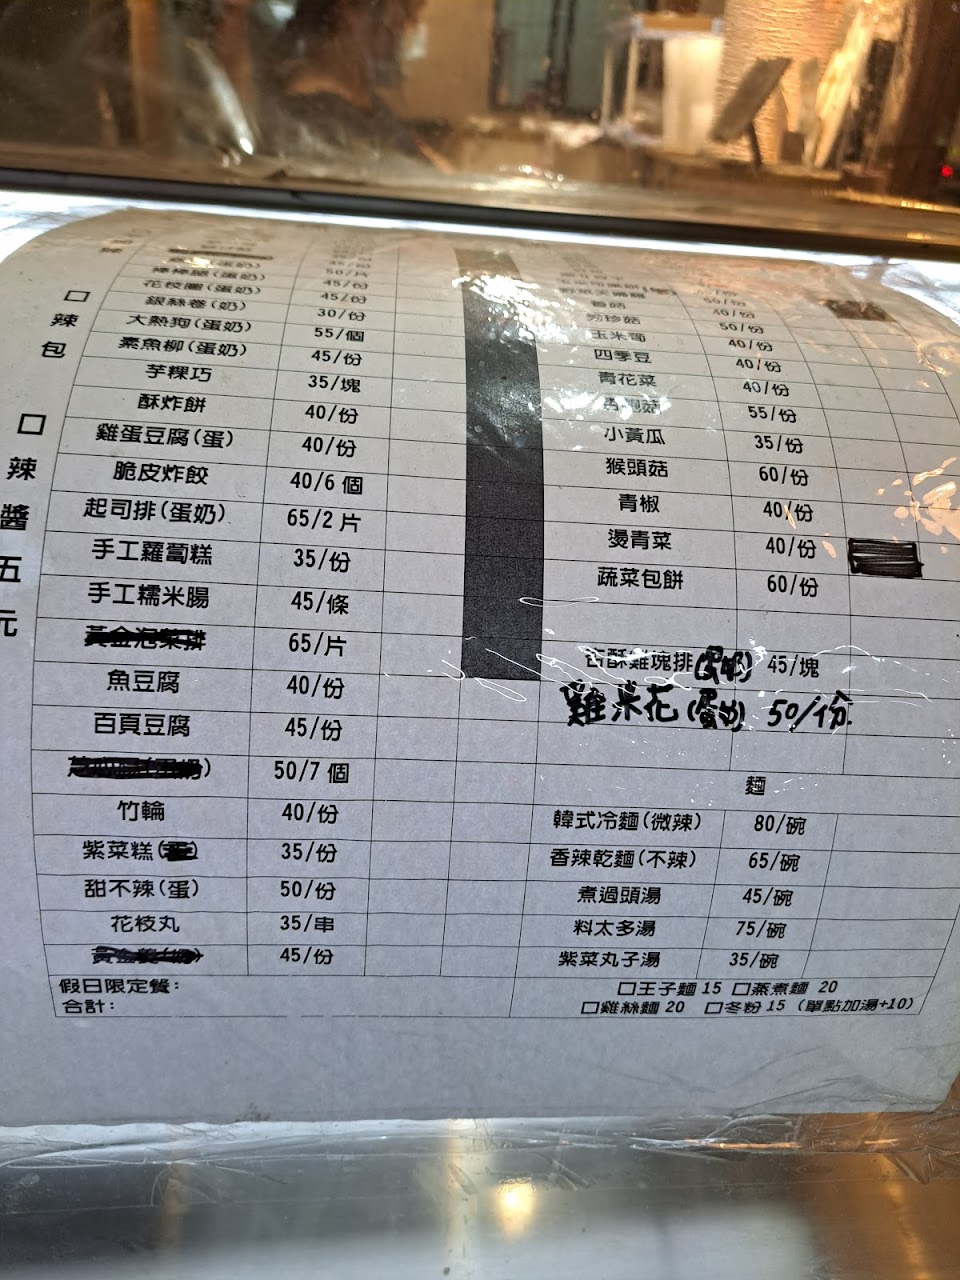 □辣包
□辣醬五元
棒棒腿(蛋奶) 50/片
花枝圈(蛋奶) 45/份
銀絲卷(奶) 30/份
大熱狗(蛋奶) 55/個
素魚柳(蛋奶) 45/份
芋粿巧 35/塊
酥炸餅 40/份
雞蛋豆腐(蛋) 40/份
脆皮炸餃 40/6個
起司排(蛋奶) 65/2片
手工蘿蔔糕 35/份
手工糯米腸 45/條
65/片
魚豆腐 40/份
百頁豆腐 45/份
50/7個
竹輪 40/份
紫菜糕 35/份
甜不辣(蛋) 50/份
花枝丸 35/串
45/份
假日限定餐:
合計:
香菇 40/份
秀珍菇 50/份
玉米筍 40/份
四季豆 40/份
青花菜 40/份
55/份
小黃瓜 35/份
猴頭菇 60/份
青椒 40/份
燙青菜 40/份
蔬菜包餅 60/份
杏酥雞塊排(蛋奶) 45/塊
雞米花(蛋奶) 50/份
麵
韓式冷麵(微辣) 80/碗
香辣乾麵(不辣) 65/碗
煮過頭湯 45/碗
料太多湯 75/碗
紫菜丸子湯 35/碗
□王子麵 15 □蒸煮麵 20
□雞絲麵 20 □冬粉 15 (單點加湯+10)